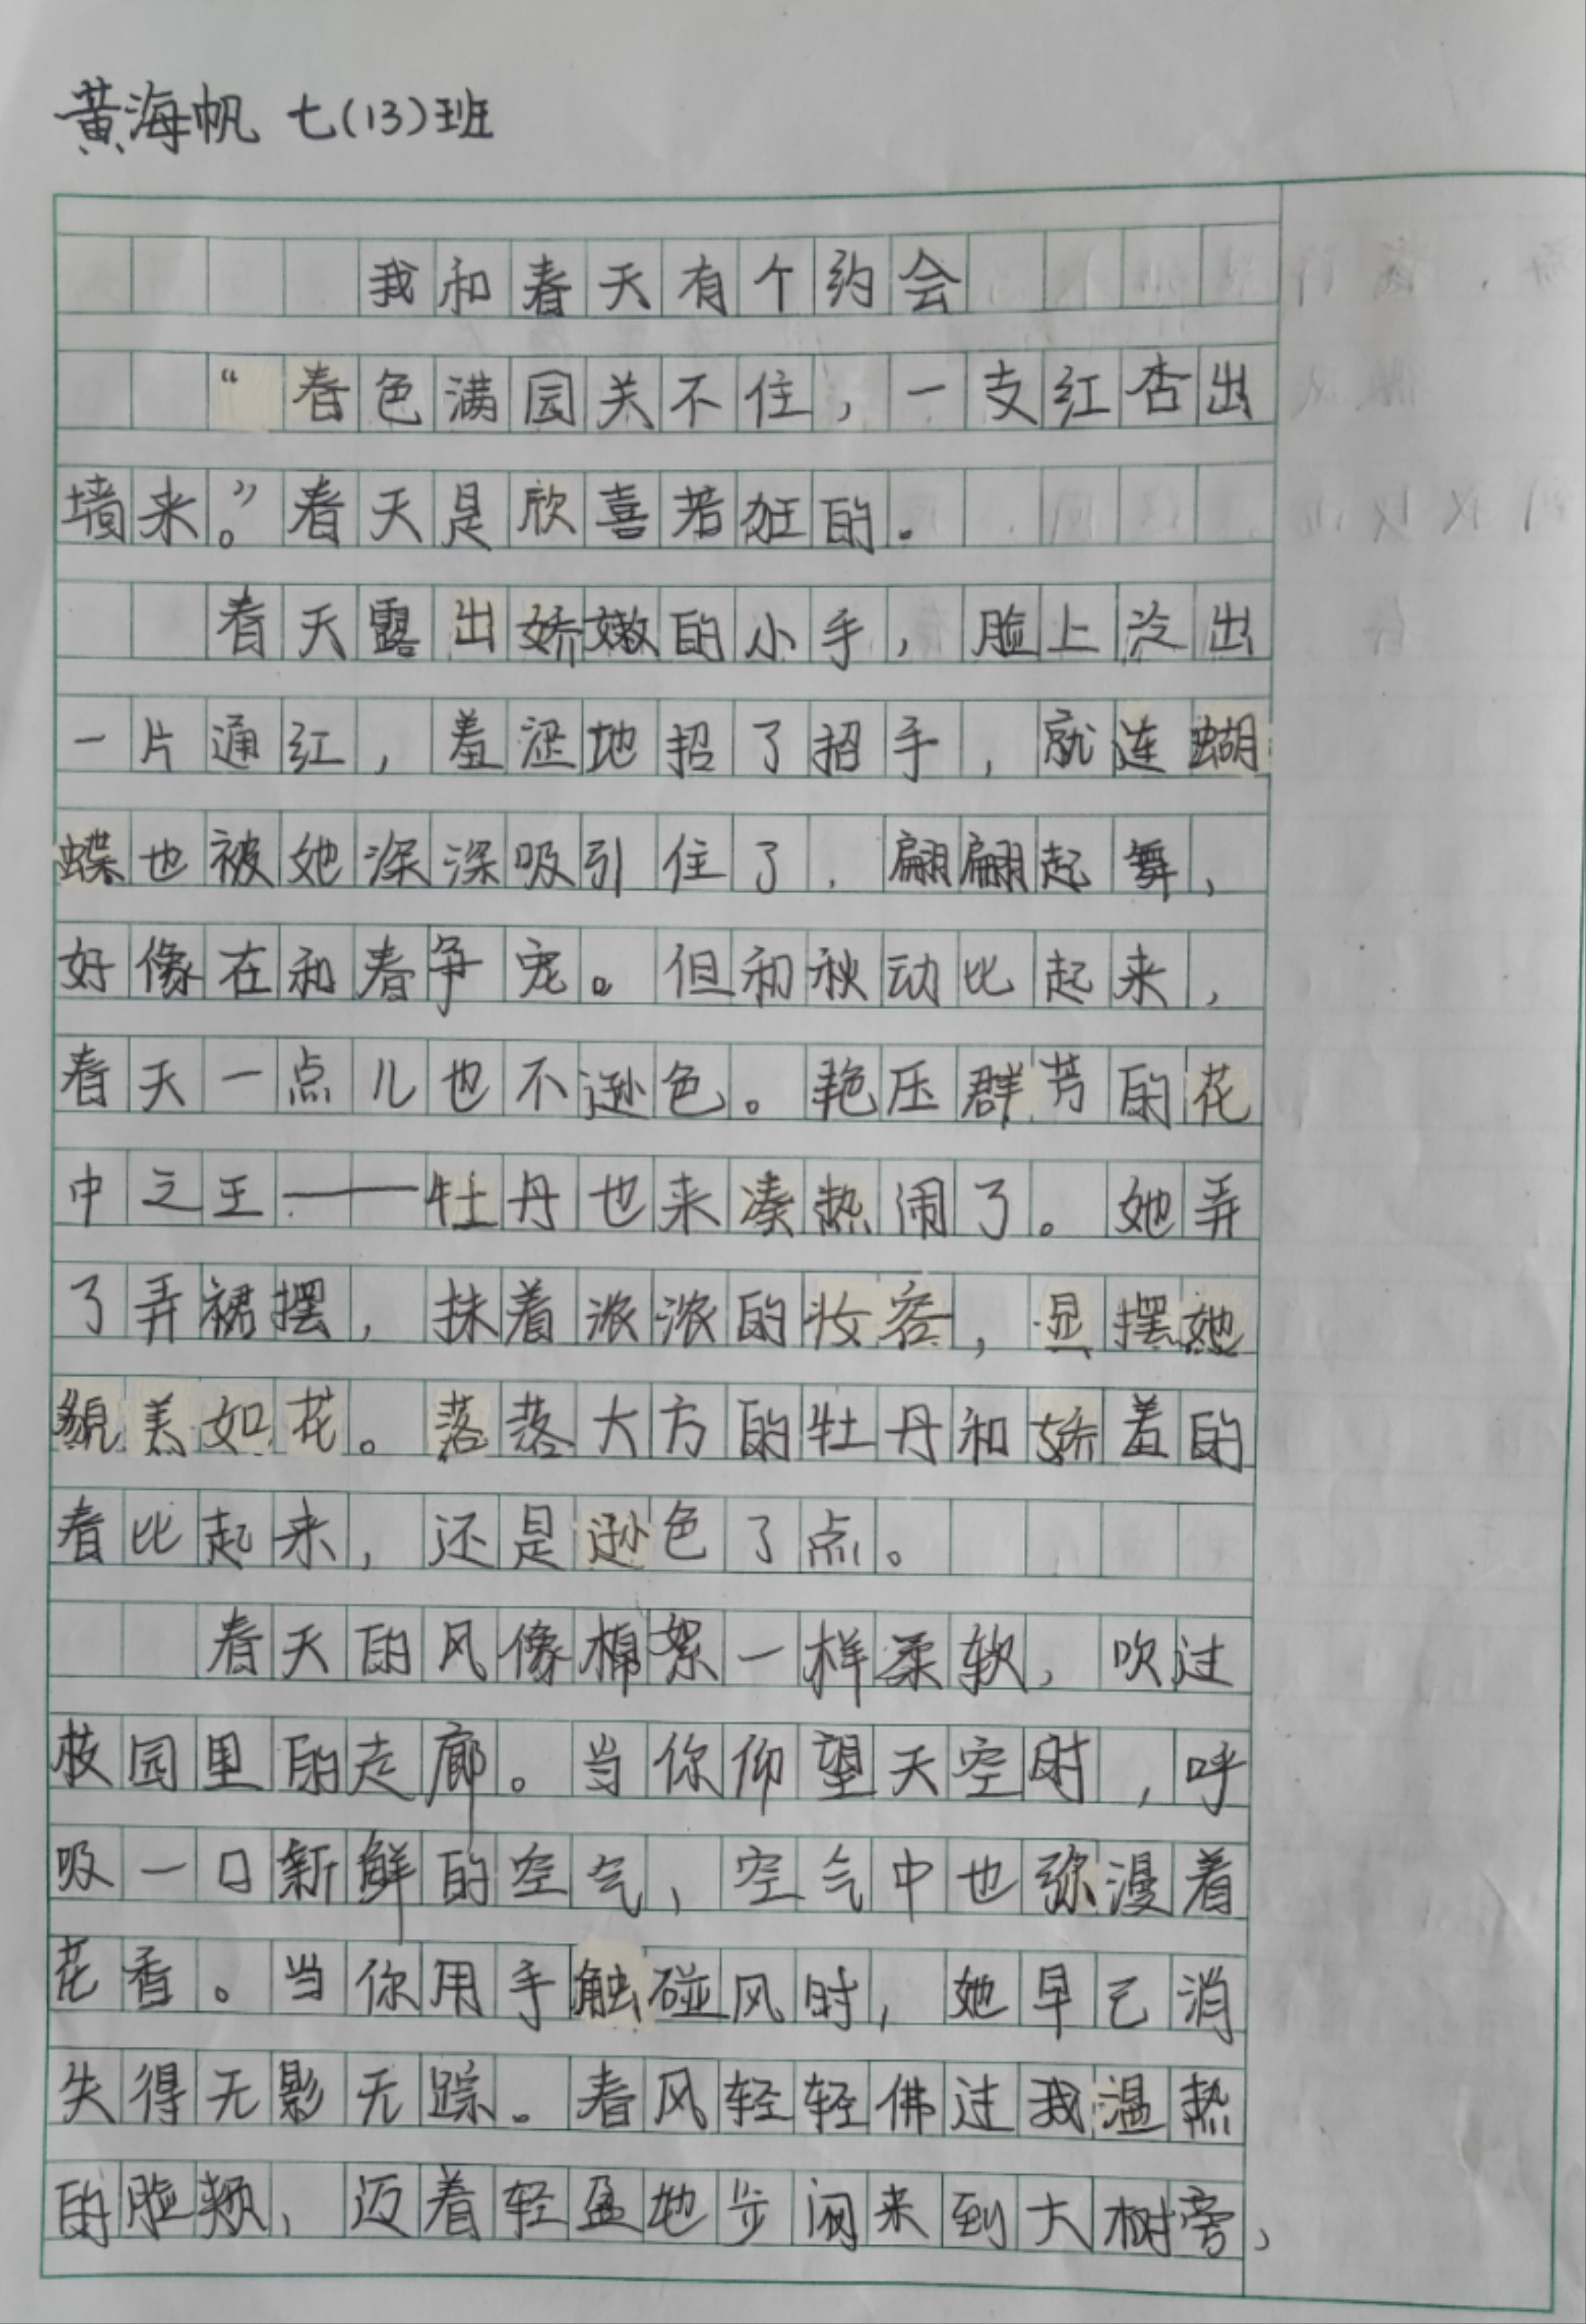 黄海帆 七(13)班
我和春天有个约会
“春色满园关不住，一支红杏出
墙来。”春天是欣喜若狂的。
春天露出娇嫩的小手，脸上泛出
一片通红，羞涩地招了招手，就连蝴
蝶也被她深深吸引住了，翩翩起舞，
好像在和春争宠。但和秋动比起来，
春天一点儿也不逊色。艳压群芳的花
中之王——牡丹也来凑热闹了。她弄
了弄裙摆，抹着浓浓的妆容，显摆她
貌美如花。落落大方的牡丹和娇羞的
春比起来，还是逊色了点。
春天的风像棉絮一样柔软，吹过
校园里的走廊。当你仰望天空时，呼
吸一口新鲜的空气，空气中也弥漫着
花香。当你用手触碰风时，她早已消
失得无影无踪。春风轻轻佛过我温热
的脸颊，迈着轻盈地步阀来到大树旁，